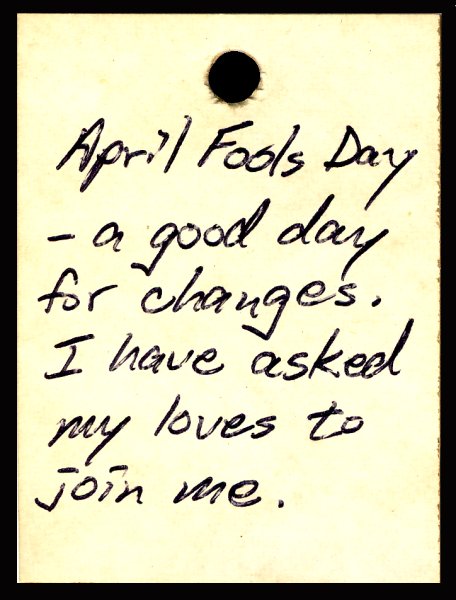 April Fools Day
- a good day
for changes.
I have asked
my loves to
join me.